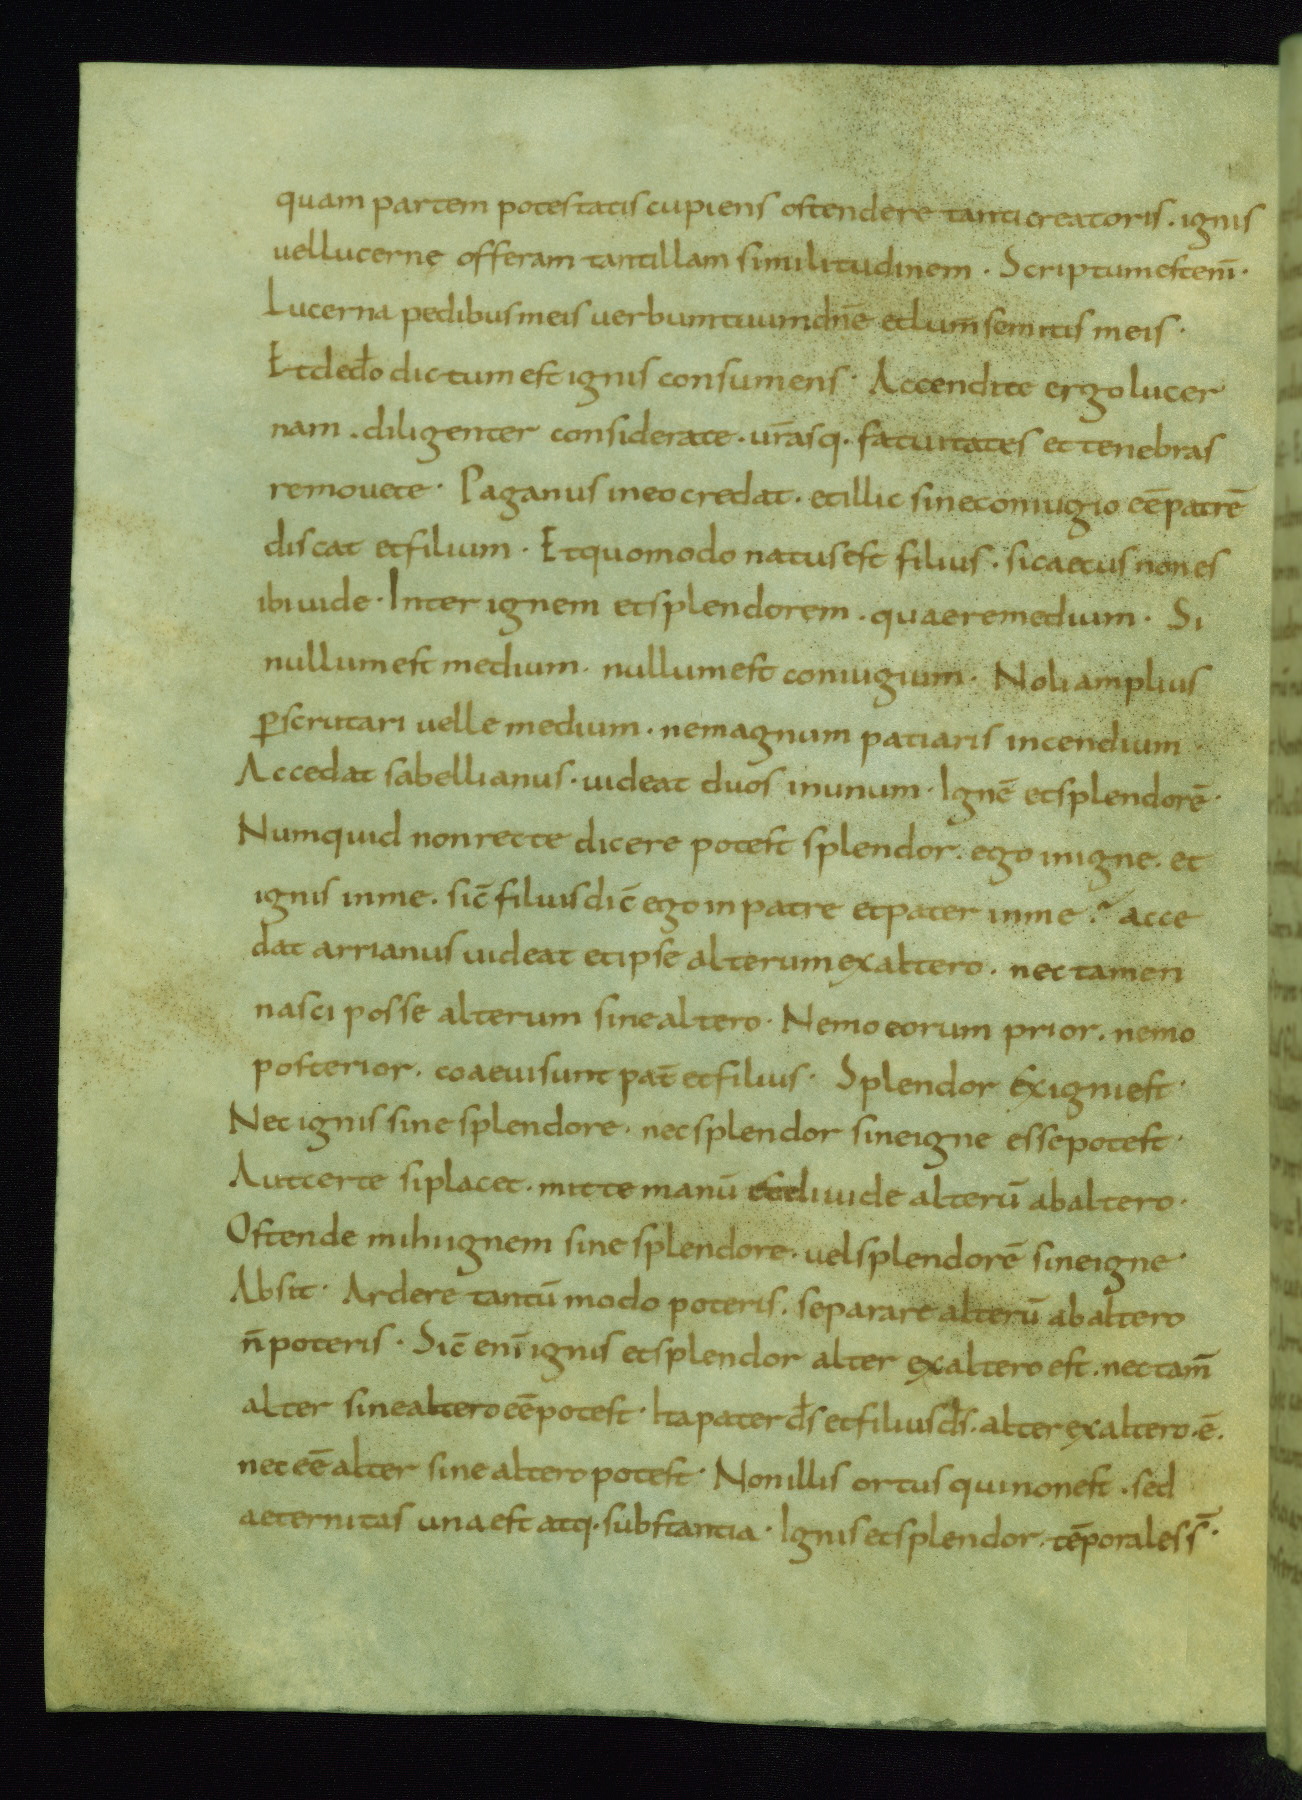 quam partem potestatis cupiens ostendere tanti creatoris. ignis
uel lucernę offeram tantillam similitudinem. Scriptum est eni̅.
Lucerna pedibus meis uerbum tuum dn̅e et lum̅ semitis meis.
Et de do̅ dictum est ignis consumens. Accendite ergo lucer
nam. diligenter considerate. ur̅asq. fatuitates et tenebras
remouete. Paganus in eo credat. et illic sine coniugio ee̅ patre̅
discat et filium. Et quomodo natus est filius. si caecus non es
ibi uide. Inter ignem et splendorem. quaere medium. Si
nullum est medium. nullum est coniugium. Noli amplius
ꝑscrutari uelle medium. ne magnum patiaris incendium
Accedat sabellianus. uideat duos in unum. Igne̅ et splendore̅.
Numquid non recte dicere potest splendor. ego in igne. et
ignis in me. sic̅ filius dic̅ ego in patre et pater in me.~ acce
dat arrianus uideat et ipse alterum ex altero. nec tamen
nasci posse alterum sine altero. Nemo eorum prior. nemo
posterior. coaeui sunt pat̅ et filius. Splendor ex igni est.
Nec ignis sine splendore. nec splendor sine igne esse potest.
Aut certe si placet. mitte manu̅ et diuide alteru̅ ab altero.
Ostende mihi ignem sine splendore. uel splendore̅ sine igne.
Absit. Ardere tantu̅modo poteris. separare alteru̅ ab altero
n̅ poteris. Sic̅ eni̅ ignis et splendor alter ex altero est. nec tam̅
alter sine altero ee̅ potest. Ita pater ds̅ et filius ds̅. alter ex altero .e̅.
nec ee̅ alter sine altero potest. Non illis ortus qui non est. sed
aeternitas una est atq. substantia. Ignis et splendor. te̅porales s̅.